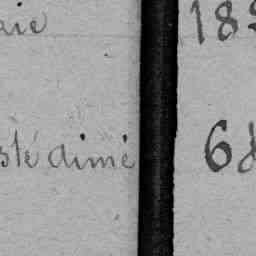 aie 18
sté aimé 6